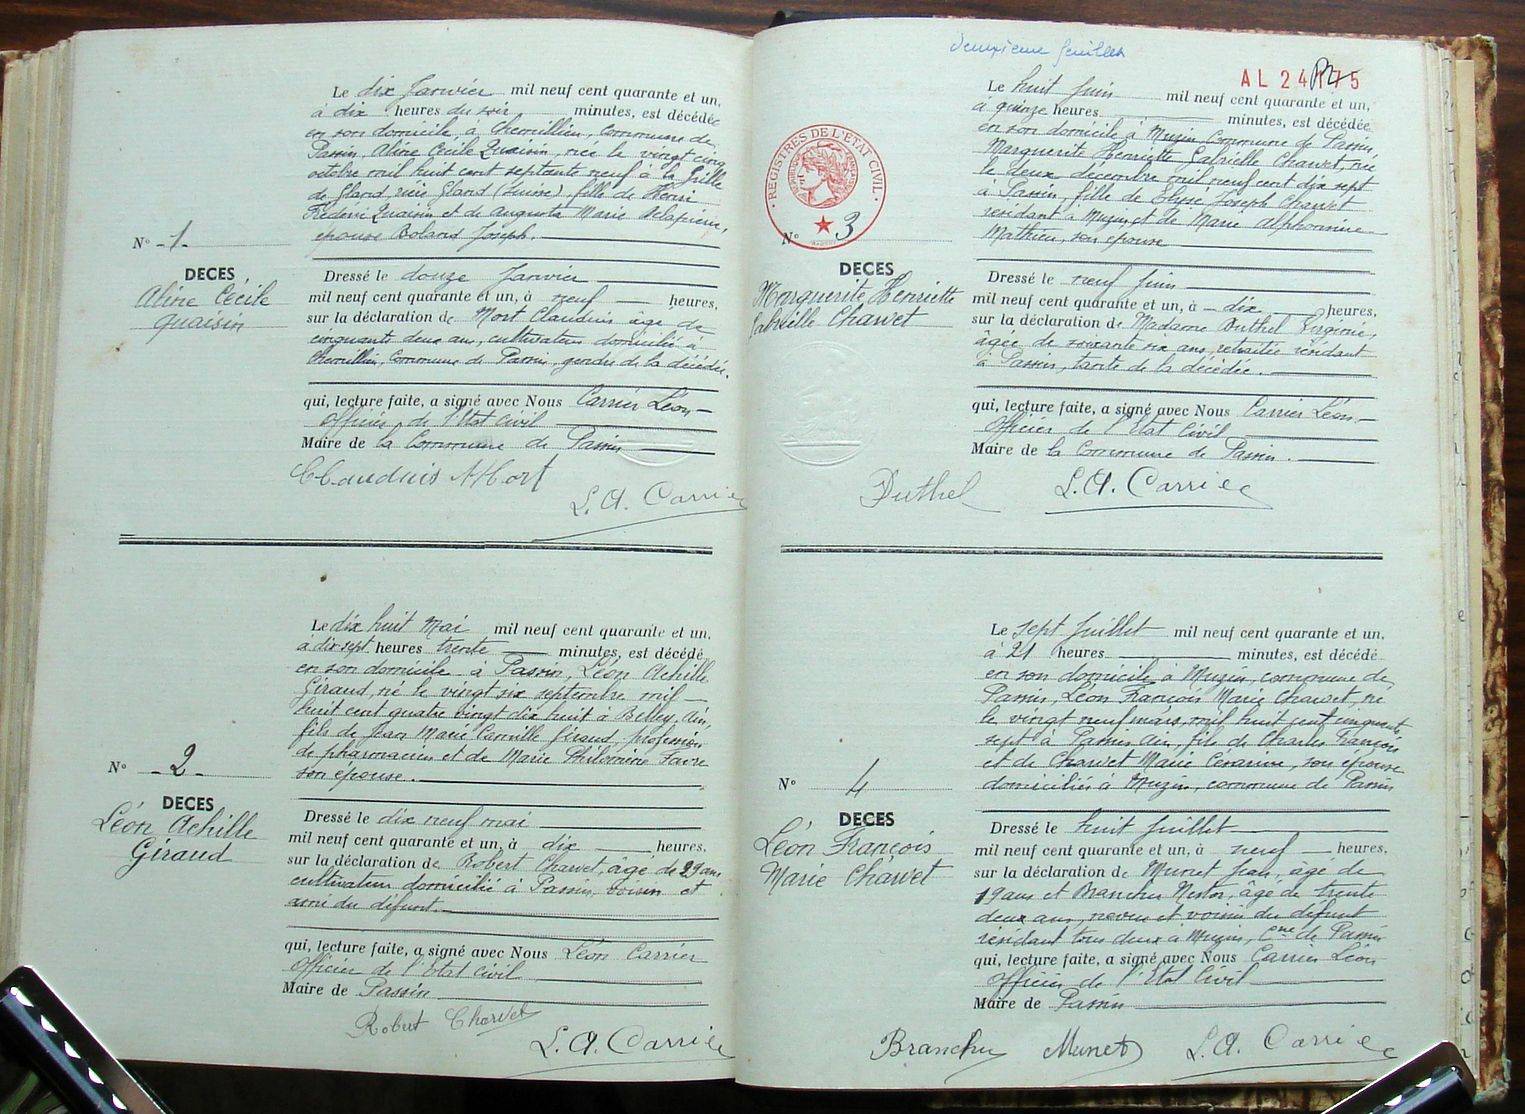 Le dix Janvier mil neuf cent quarante et un,
à dix heures du soir minutes, est décédée
en son domicile, à Chemillieu, Commune de
Passin, Aline Cécile Quaisin, née le vingt cinq
octobre mil huit cent septante neuf à la
de Gland rière Gland (Suisse), fille de Henri
Frédéric Quaisin et de Augusta Marie Delapierre,
épouse Boland Joseph.
N° -1-
DECES
Aline Cécile
Quaisin
Dressé le douze Janvier
mil neuf cent quarante et un, à neuf heures,
sur la déclaration de Mort Claudius âgé de
cinquante deux ans, cultivateur domicilié à
Chemillieu, Commune de Passin, gendre de la décédée.
qui, lecture faite, a signé avec Nous Carrier Léon
Officier de l'Etat Civil
Maire de la Commune de Passin
Claudius Mort
L. A. Carrier
Le dix huit Mai mil neuf cent quarante et un,
à dix sept heures trente minutes, est décédé
en son domicile à Passin, Léon Achille
Giraud, né le vingt six septembre mil
huit cent quatre vingt dix huit à Belley, Ain,
fils de Jean Marie Camille Giraud, profession
de pharmacien et de Marie Philomène Favre
son épouse.
N° -2-
DECES
Léon Achille
Giraud
Dressé le dix neuf mai
mil neuf cent quarante et un, à dix heures,
sur la déclaration de Robert Charvet, âgé de 29 ans
cultivateur domicilié à Passin, voisin et
ami du défunt.
qui, lecture faite, a signé avec Nous Léon Carrier
Officier de l'Etat Civil
Maire de Passin
Robert Charvet
L. A. Carrier
deuxième feuillet
AL 24 175
Le huit Juin mil neuf cent quarante et un,
à quinze heures minutes, est décédée
en son domicile à Muzin Commune de Passin,
Marguerite Henriette Gabrielle Charvet, née
le deux décembre mil neuf cent dix sept
à Passin, fille de Elyse Joseph Charvet
résidant à Muzin, et de Marie Alphonsine
Mathieu, son épouse
REGISTRES DE L'ETAT CIVIL
N° 3
DECES
Marguerite Henriette
Gabrielle Charvet
Dressé le neuf Juin
mil neuf cent quarante et un, à dix heures,
sur la déclaration de Madame Duthel Virginie,
âgée de soixante six ans, retraitée résidant
à Passin, tante de la décédée.
qui, lecture faite, a signé avec Nous Carrier Léon
Officier de l'Etat Civil
Maire de la Commune de Passin.
Duthel
L. A. Carrier
Le sept Juillet mil neuf cent quarante et un,
à 21 heures minutes, est décédé
en son domicile à Muzin, commune de
Passin, Léon François Marie Charvet, né
le vingt neuf mars mil huit cent cinquante
sept à Passin Ain, fils de Charles François
et de Charvet Marie Césarine, son épouse
domiciliés à Muzin, commune de Passin
N° 4
DECES
Léon François
Marie Charvet
Dressé le huit Juillet
mil neuf cent quarante et un, à neuf heures,
sur la déclaration de Munet Jean, âgé de
19 ans et Branchu Nestor, âgé de trente
deux ans, neveu et voisin du défunt
résidant tous deux à Muzin, Cne de Passin
qui, lecture faite, a signé avec Nous Carrier Léon
Officier de l'Etat Civil
Maire de Passin
Branchu Munet L. A. Carrier